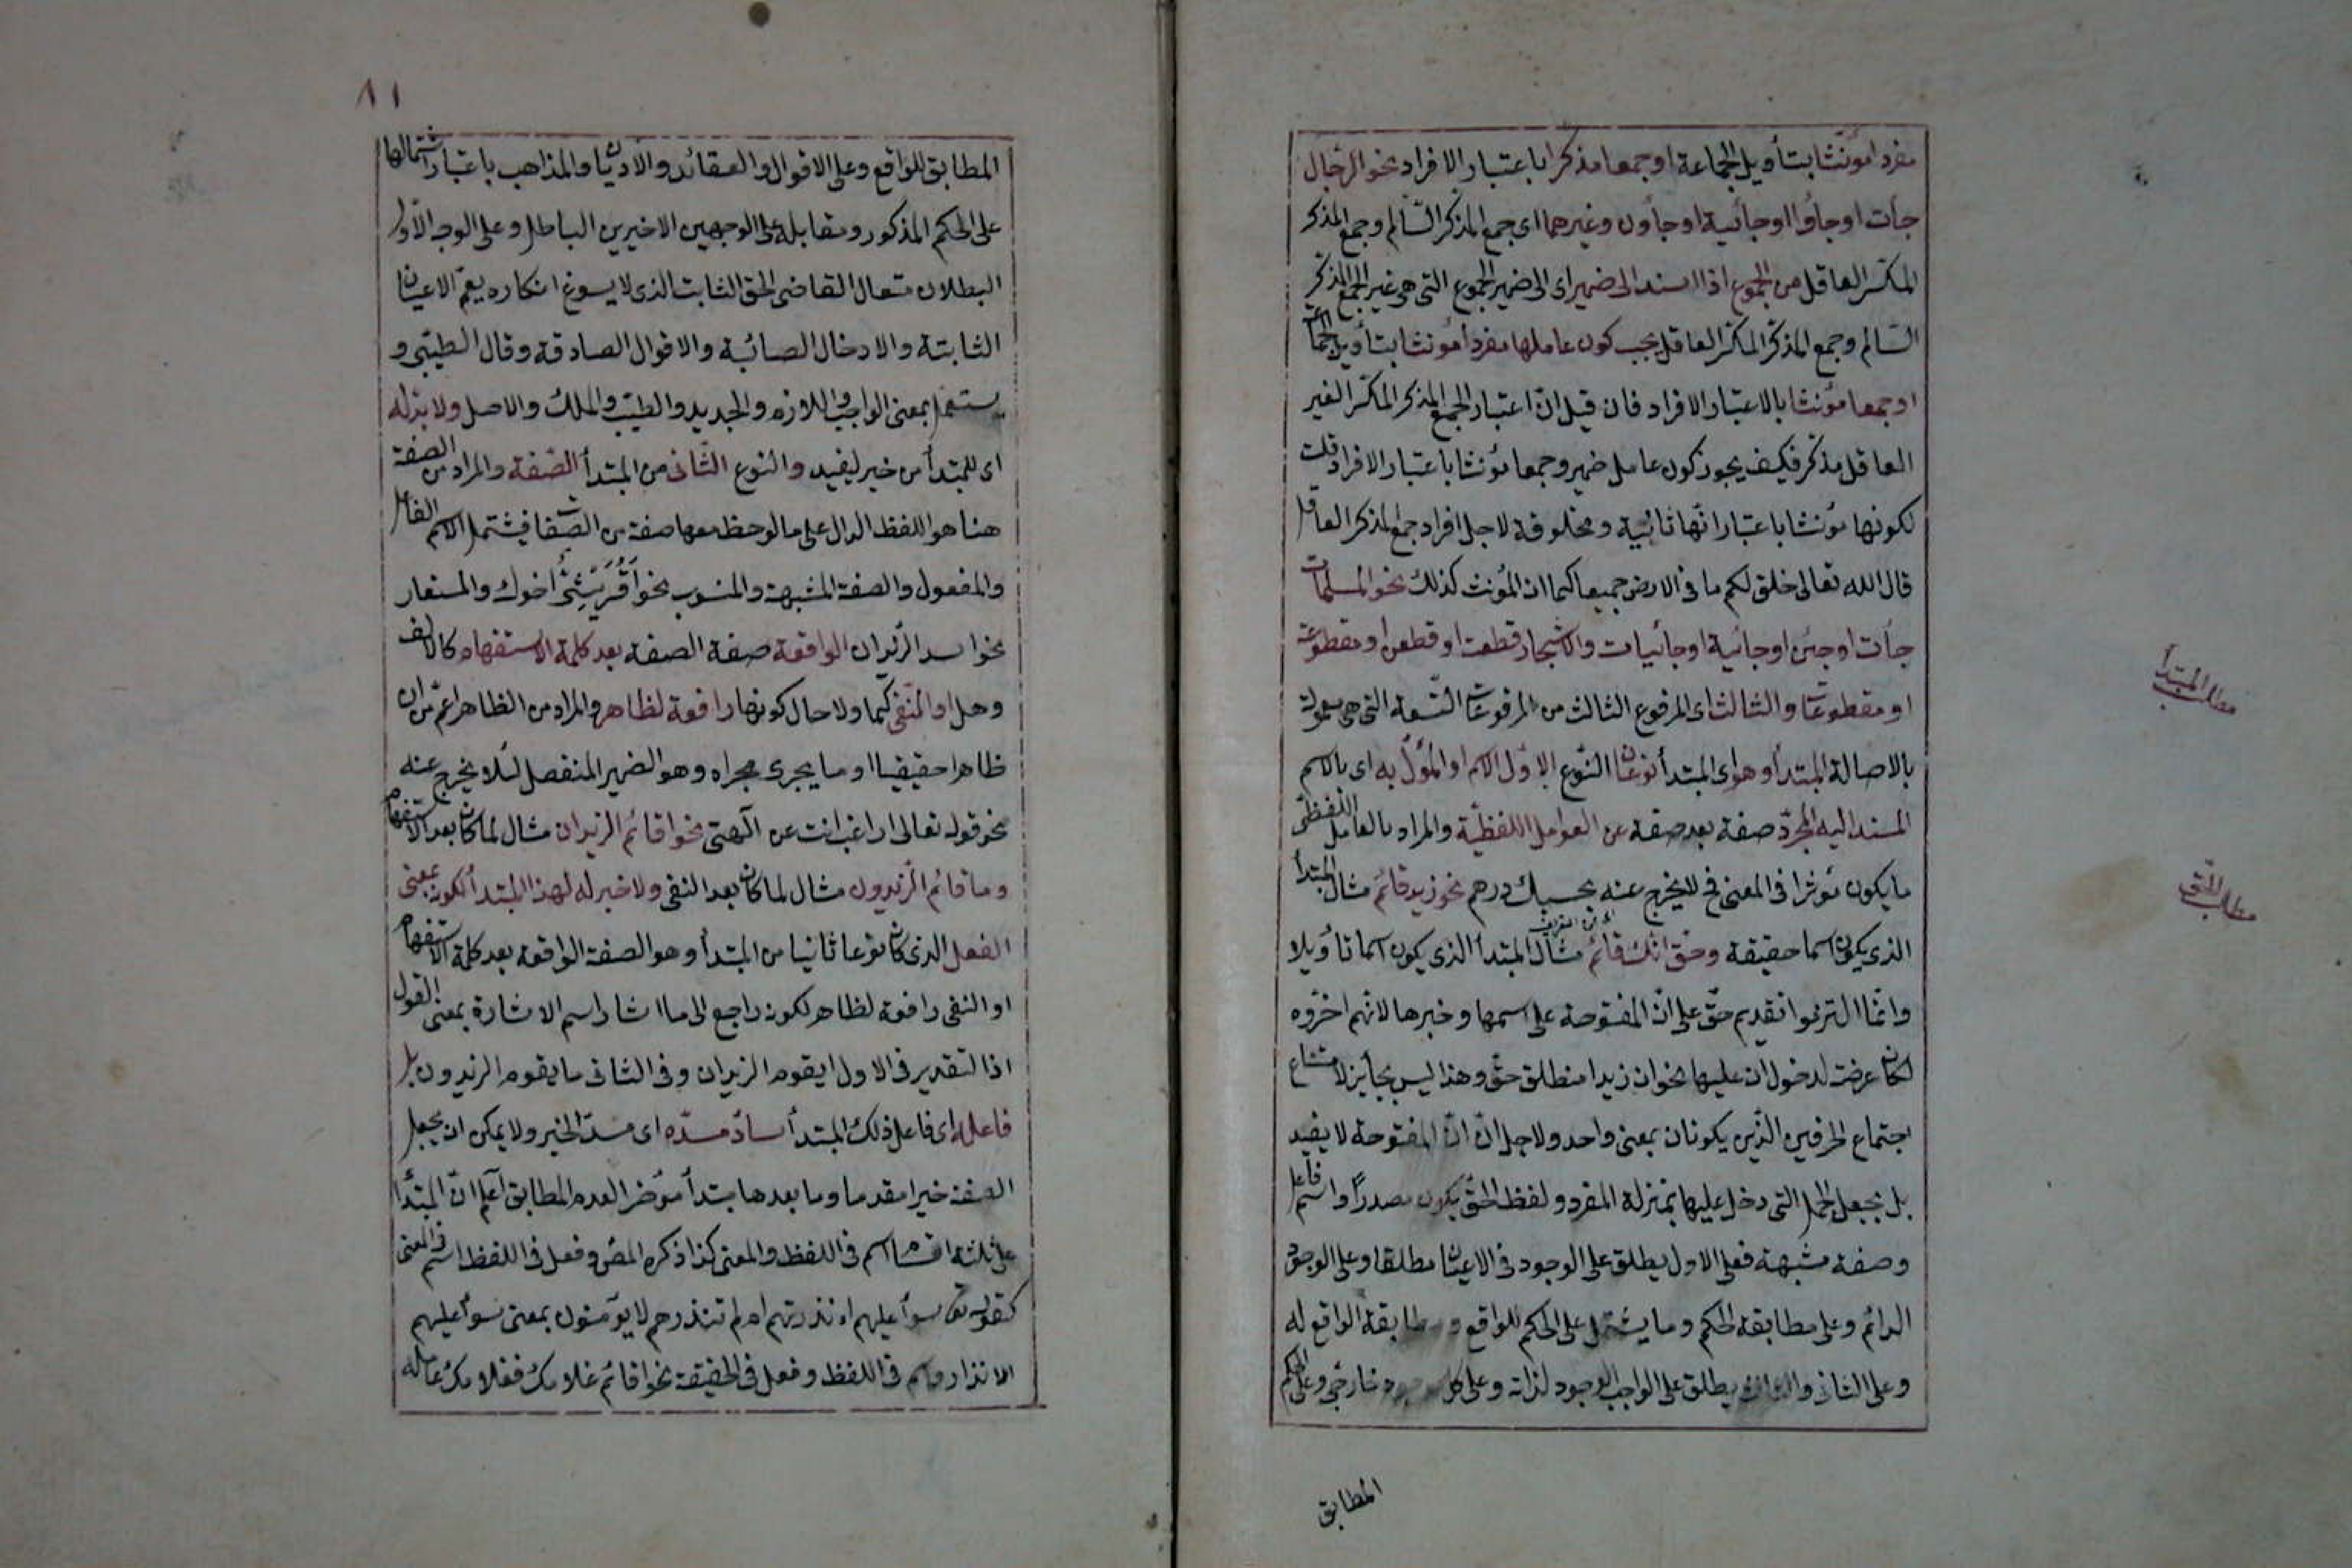 مفردا مؤنثا بتأويل الجماعة او جمعا مذكرا باعتبار الافراد نحو الرجال
جأت او جأوا او جائية او جاؤن وغيرهما اى جمع المذكر السالم وجمع المذكر
المكسر العاقل من الجموع اذا اسند الى ضميراى الى ضمير الجموع التى هى غير الجمع المذكر
السالم وجمع المذكر المكسر العاقل يجب كون عاملها مفردا مؤنثا بتأويل الجماعة
او جمعا مؤنثا بالاعتبار الافراد فان قيل ان اعتبار الجمع المذكر المكسر الغير
العاقل مذكر فكيف يجوز كون عامل ضمير وجمعا مؤنثا باعتبار الافراد قلت
لكونها مؤنثا باعتبار انها تائية ومخلوقة لاجل افراد جمع المذكر العاقل
قال الله تعالى خلق لكم ما فى الارض جميعا كما ان المؤنث كذلك نحو المسلمات
جأت او جئن او جائية او جائيات والاشجار قطعت او قطعن او مقطوعة
او مقطوعات والثالث اى المرفوع الثالث من المرفوعات التسعة التى هى معمولة
بالاصالة المبتدأ وهو اى المبتدأ نوعان النوع الاول الاسم او المؤل به اى بالاسم
المسند اليه المجرد صفة بعد صفة عن العوامل اللفظية والمراد بالعامل اللفظى
ما يكون مؤثرا فى المعنى فح لا يخرج عنه بحسبك درهم نحو زيد قائم مثال المبتدأ
الذى يكون اسما حقيقة وحق انك قائم مثال المبتدأ الذى يكون اسما تأويلا
وانما التزموا تقديم حق على ان المفتوحة على اسمها وخبرها لانهم اخروه
لكان عرضت لدخول ان عليها نحو ان زيدا منطلق حق وهذا ليس بجايز لامتناع
اجتماع الحرفين الذين يكونان بمعنى واحد ولاجل ان ان المفتوحة لا يفيد
بل يجعل الجمل التى دخل عليها بمنزلة المفرد ولفظ الحق يكون مصدرا واسم فاعل
وصفة مشبهة فعلى الاول يطلق على الوجود فى الاعيان مطلقا وعلى الوجود
الدائم وعلى مطابقة الحكم وما يشتمل على الحكم للواقع ومطابقة الواقع له
وعلى الثانى والثالث يطلق على الواجب الوجود لذاته وعلى كل موجود خارجى وعلى الحكم
المطابق
مطلب المبتدأ
مطلب الحق
١١
المطابق للواقع وعلى الاقوال والعقائد والاديان والمذاهب باعتبار اشتمالها
على الحكم المذكور ومقابله على الوجهين الاخيرين الباطل وعلى الوجه الاول
البطلان قال القاضى الحق الثابت الذى لا يسوغ انكاره يعم الاعيان
الثابتة والادخال الصائبة والاقوال الصادقة وقال الطيبى و
يستعمل بمعنى الواجب واللازم والجديد والطيب والملك والاصل ولا بد له
اى للمبتدأ من خبر ليفيد والنوع الثانى من المبتدأ الصفة والمراد من الصفة
هنا هو اللفظ الدال على ما لوحظ معها صفة من الصفات فيشتمل الاسم الفاعل
والمفعول والصفة المشبهة والمنسوب نحو أَقُرَيْشِىٌّ اخوك والمستعار
نحو اسد الزيدان الواقعة صفة الصفة بعد كلمة الاستفهام كالالف
وهل او النفى كما ولا حال كونها رافعة لظاهر والمراد من الظاهر اعم من ان
ظاهرا حقيقيا او ما يجرى مجراه وهو الضمير المنفصل لئلا يخرج عنه
نحو قوله تعالى اراغب انت عن آلهتى نحو اقائم الزيدان مثال لما كان بعد الاستفهام
وما قائم الزيدون مثال لما كان بعد النفى ولا خبر له لهذا المبتدأ لكونه بمعنى
الفعل الذى كان نوعا ثانيا من المبتدأ وهو الصفة الواقعة بعد كلمة الاستفهام
او النفى رافعة لظاهر لكونه راجع الى ما اشار اسم الاشارة بمعنى القول
اذ التقدير فى الاول ايقوم الزيدان وفى الثانى ما يقوم الزيدون بل
فاعله اى فاعل ذلك المبتدأ ساد مسده اى مسد الخبر ولا يمكن ان يجعل
الصفة خبرا مقدما وما بعدها مبتدأ مؤخر العدم المطابق اعلم ان المبتدأ
على ثلثة اقسام اسم فى اللفظ والمعنى كذا ذكره المص وفعل فى اللفظ اسم فى المعنى
كقوله تع سوأ عليهم اءنذرتهم ام لم تنذرهم لا يؤمنون بمعنى سوأ عليهم
الانذار واسم فى اللفظ وفعل فى الحقيقة نحو اقائم غلامك فغلامك